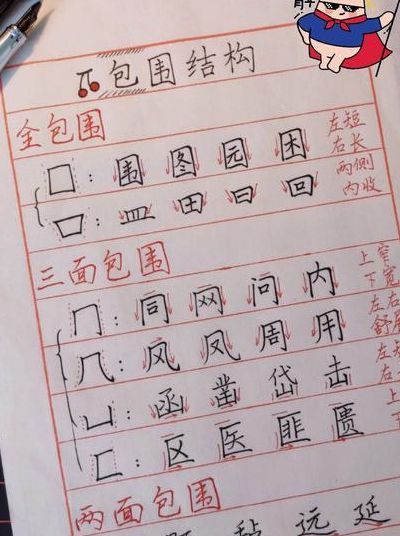 包围结构
全包围
囗：围图园困
左短
右长
口：皿田曰回
两侧
内收
三面包围
冂：同网问内
上窄
下宽
几：风凤周用
左右
凵：函凿岱击
匚：区医匪匮
两面包围
远延